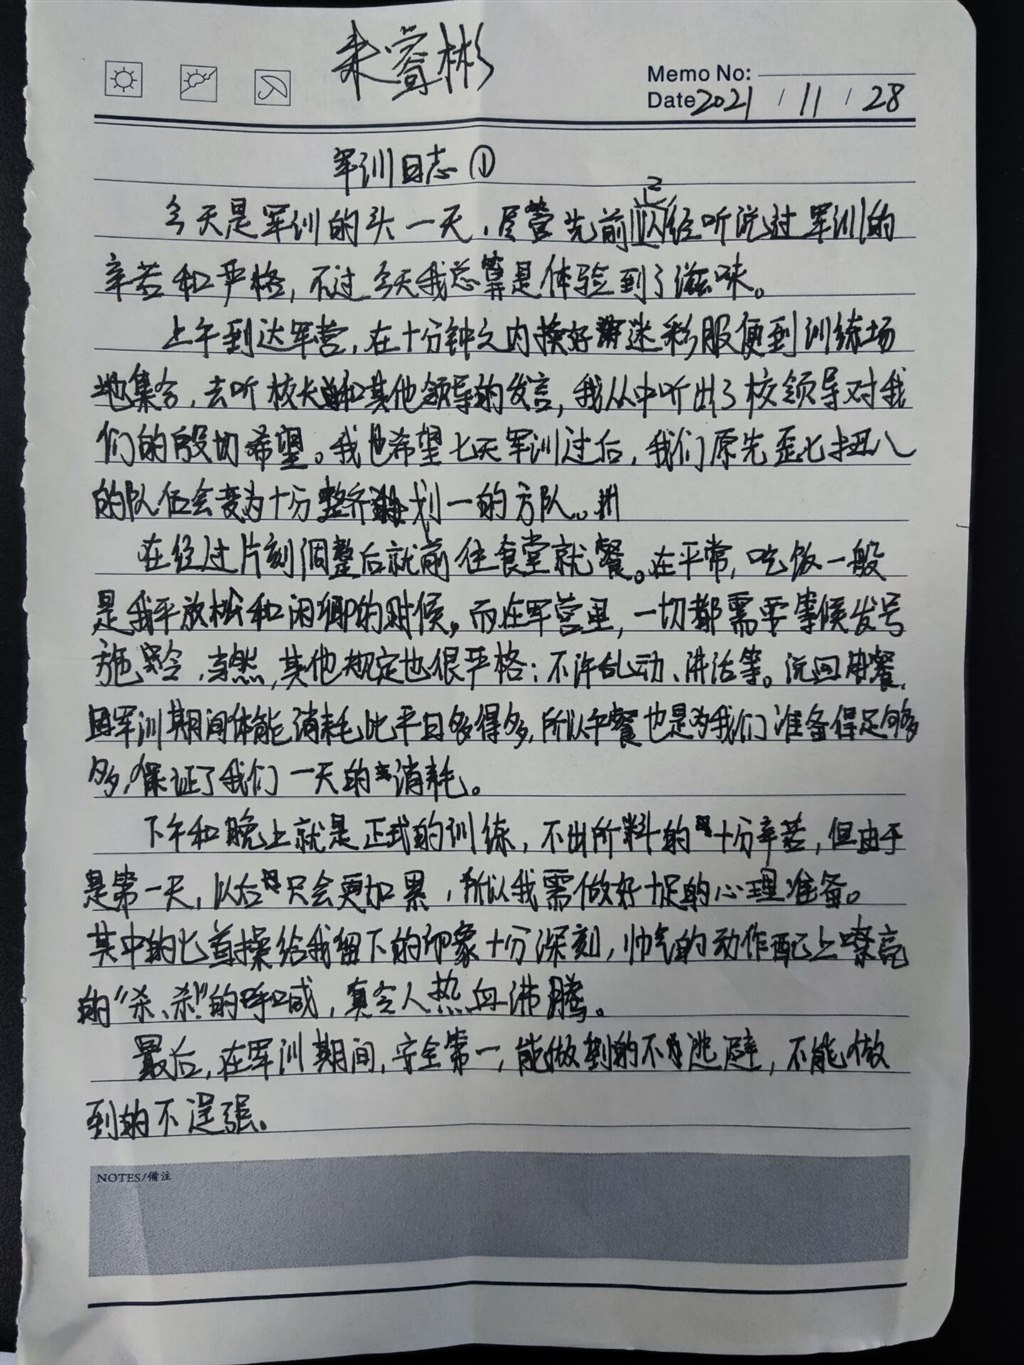 朱睿彬
Memo No:
Date 2021 / 11 / 28
军训日志①
今天是军训的头一天，尽管先前已经听说过军训的
辛苦和严格，不过今天我总算是体验到了滋味。
上午到达军营，在十分钟之内换好迷彩服便到训练场
地集合，去听校长和其他领导的发言，我从中听出了校领导对我
们的殷切希望。我也希望七天军训过后，我们原先歪七扭八
的队伍会变为十分整齐划一的方队。
在经过片刻调整后就前往食堂就餐。在平常，吃饭一般
是我平放松和闲聊的时候。而在军营里，一切都需要等候发号
施令，当然，其他规定也很严格：不许乱动、讲话等。说回用餐，
因军训期间体能消耗比平日多得多，所以午餐也是为我们准备得足够多
多，保证了我们一天的消耗。
下午和晚上就是正式的训练，不出所料的十分辛苦，但由于
是第一天，以后只会更加累，所以我需做好十足的心理准备。
其中的匕首操给我留下的印象十分深刻，帅气的动作配上嘹亮
的“杀、杀！”的呼喊，真令人热血沸腾。
最后，在军训期间，安全第一，能做到的不逃避，不能做
到的不逞强。
NOTES/備注